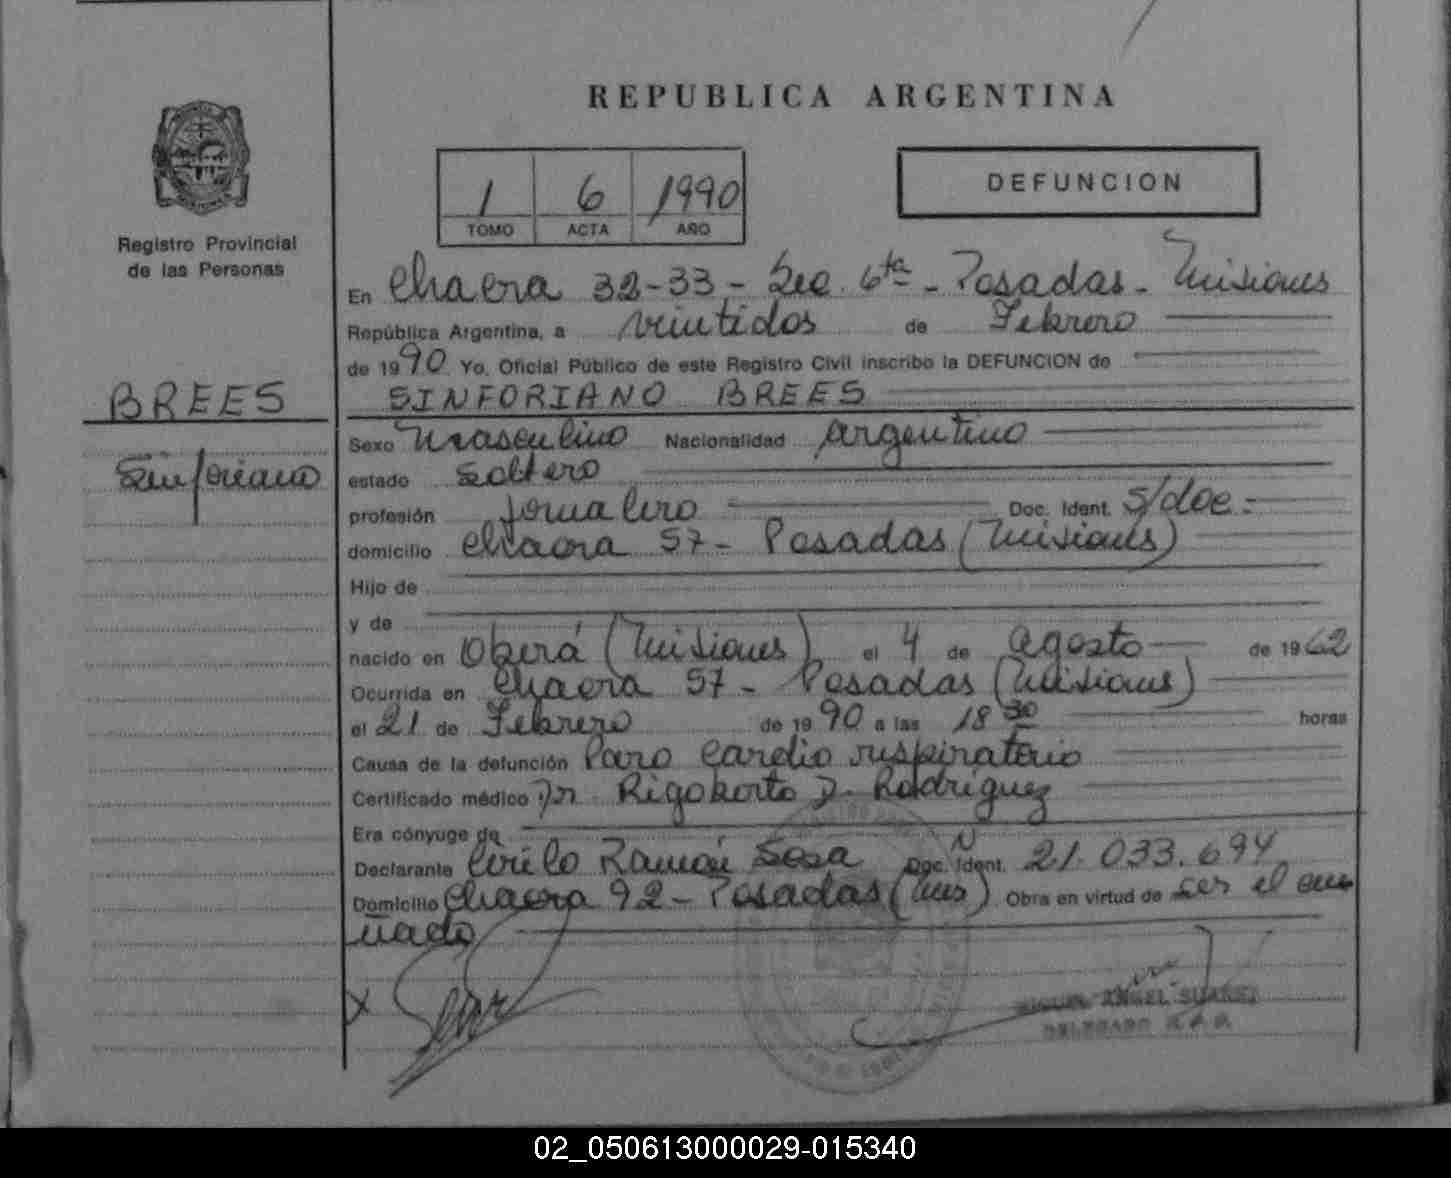 REPUBLICA ARGENTINA
1 6 1990
TOMO ACTA AÑO
DEFUNCION
Registro Provincial
de las Personas
En Chacra 32-33 - Sec. 6ta - Posadas - Misiones
República Argentina, a veintidos de Febrero
de 1990 Yo, Oficial Público de este Registro Civil inscribo la DEFUNCION de
BREES
SINFORIANO BREES
Sexo Masculino Nacionalidad Argentino
Sinforiano
estado Soltero
profesión Jornalero Doc. Ident. S/doc.
domicilio Chacra 57 - Posadas (Misiones)
Hijo de
y de
nacido en Oberá (Misiones) el 4 de Agosto de 1962
Ocurrida en Chacra 57 - Posadas (Misiones)
el 21 de Febrero de 1990 a las 18 30 horas
Causa de la defunción Paro cardio respiratorio
Certificado médico Dr. Rigoberto D. Rodríguez
Era cónyuge de
Declarante Cirilo Ramón Sosa Doc. Ident. 21.033.694
Domicilio Chacra 92 - Posadas (Mis) Obra en virtud de ser el cu
ñado
X
MIGUEL ANGEL SUAREZ
DELEGADO R.P.P.
02_050613000029-015340